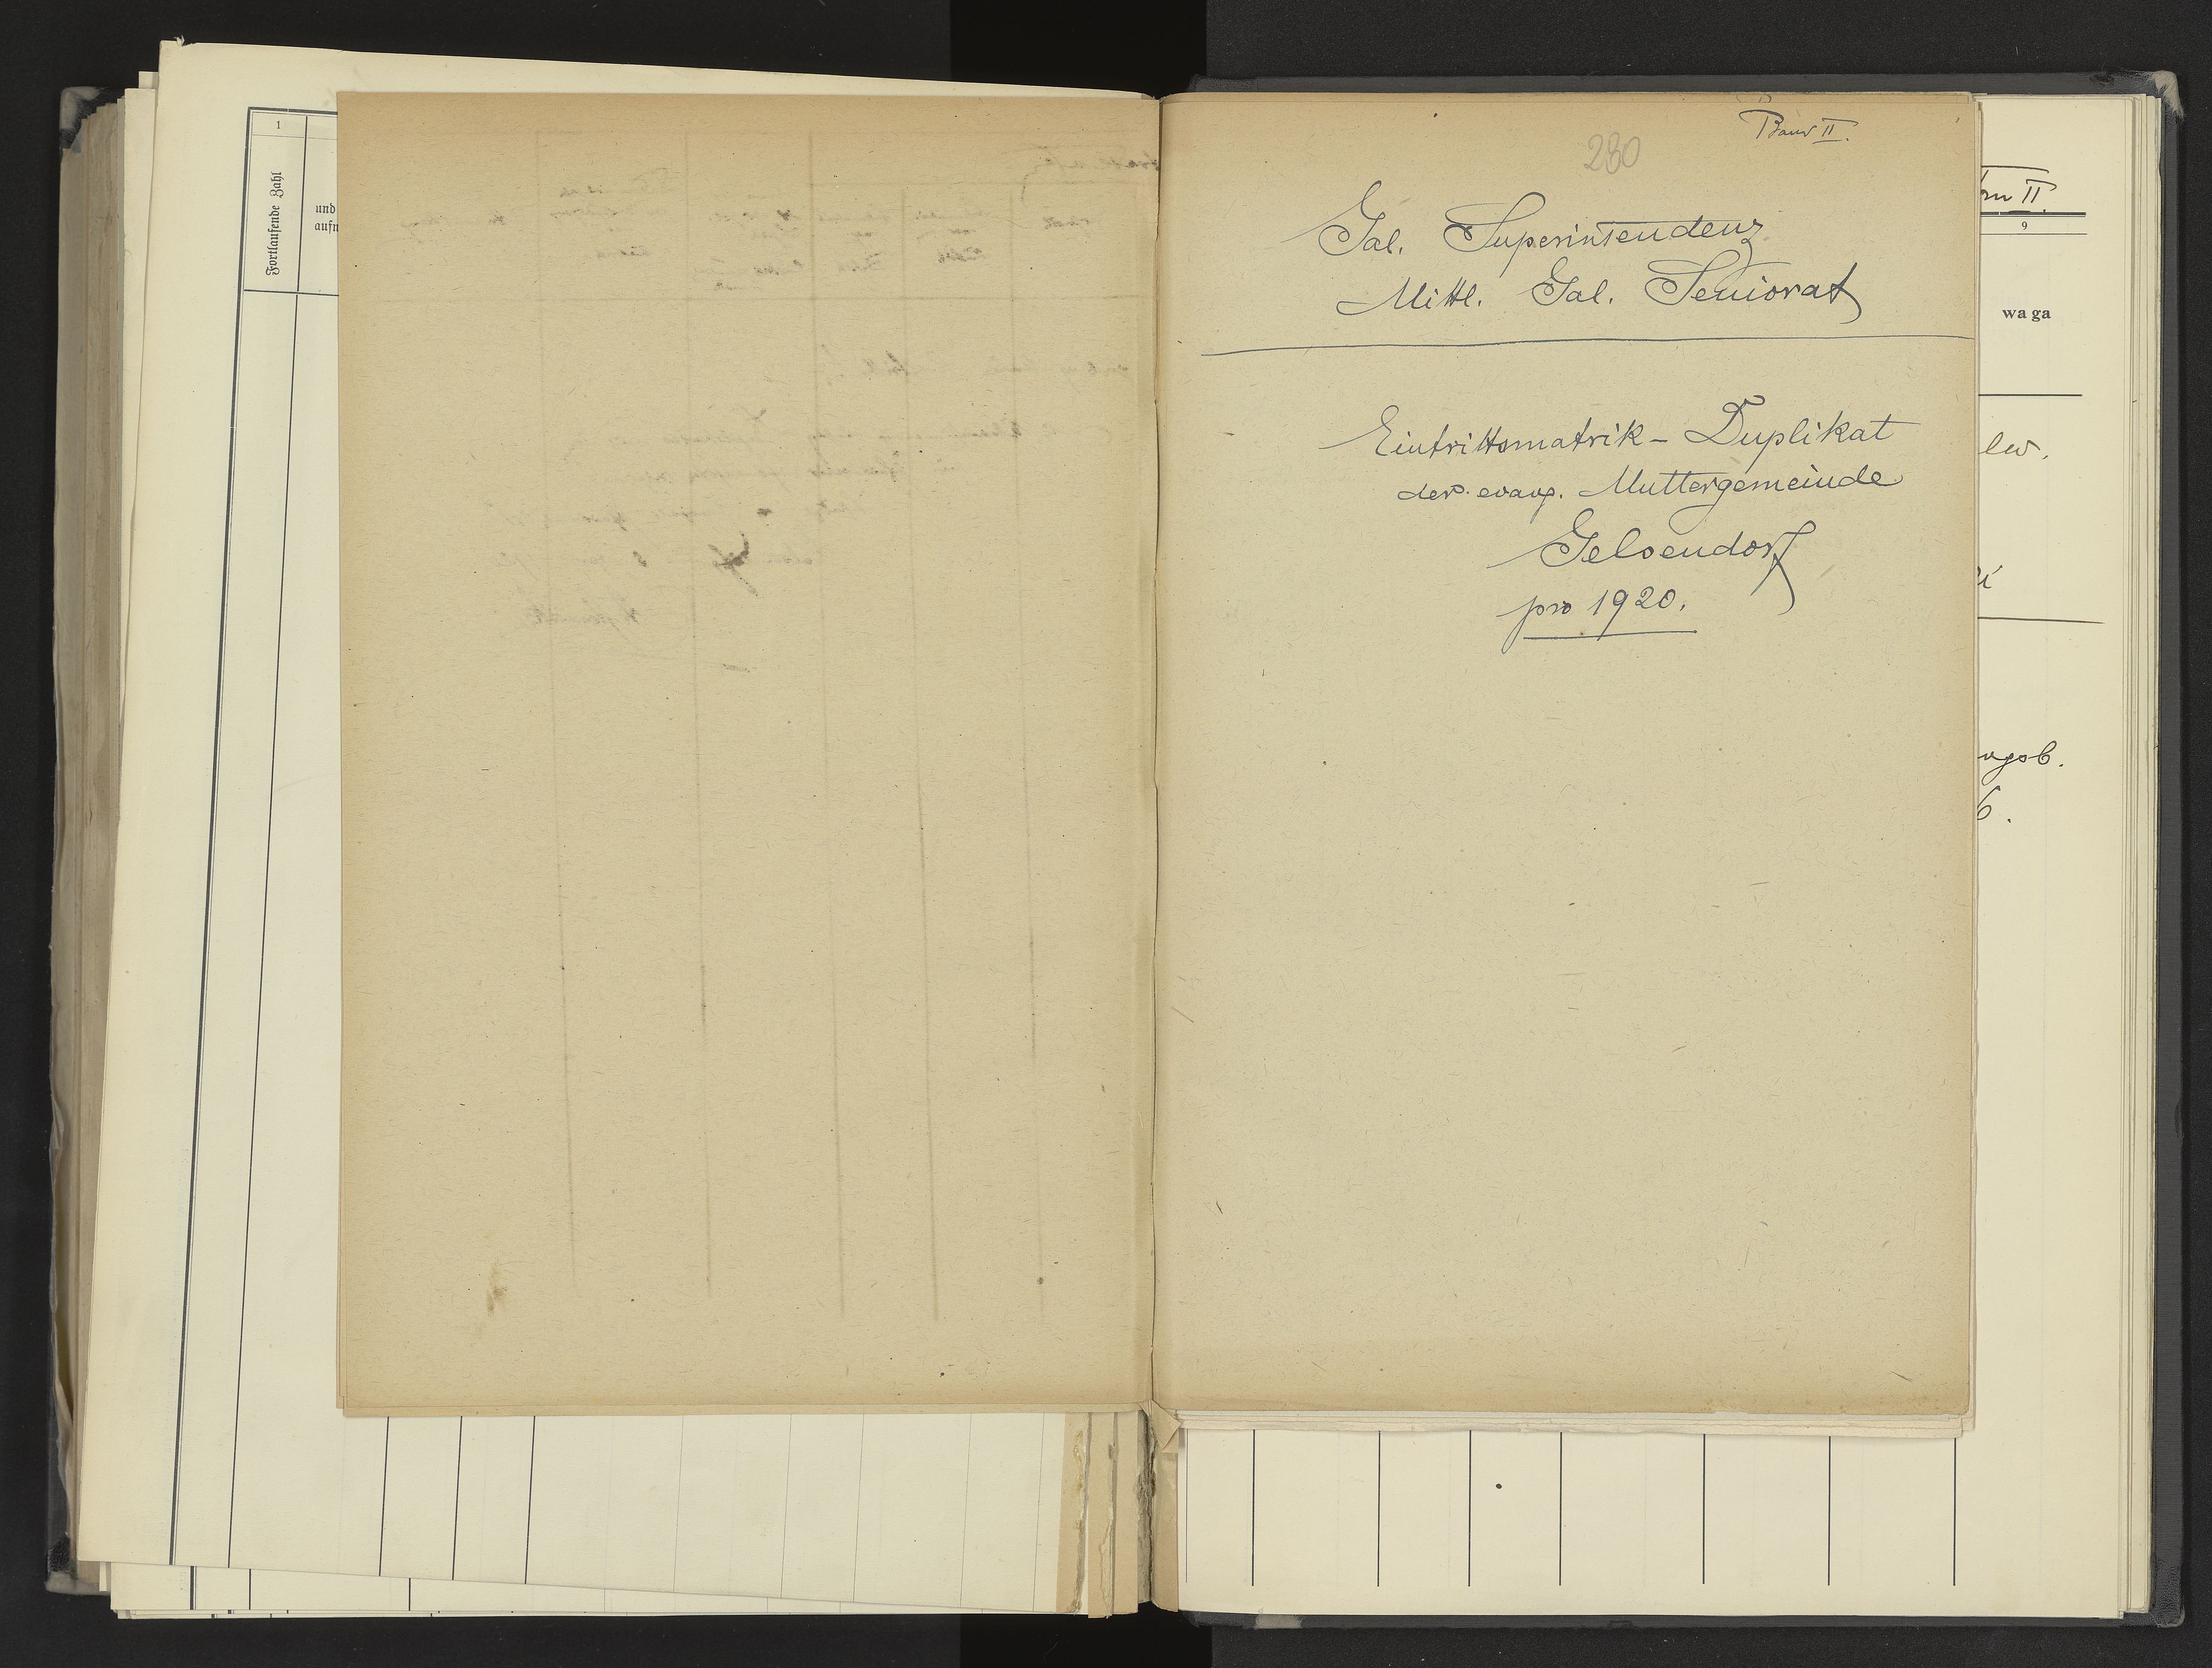 1
Fortlaufende Zahl
und
aufn
Band II.
230
Gal. Superintendenz
Mittl. Gal. Seniorat
Eintrittsmatrik - Duplikat
der evang. Muttergemeinde
Gelsendorf
pro 1920.
II.
9
waga